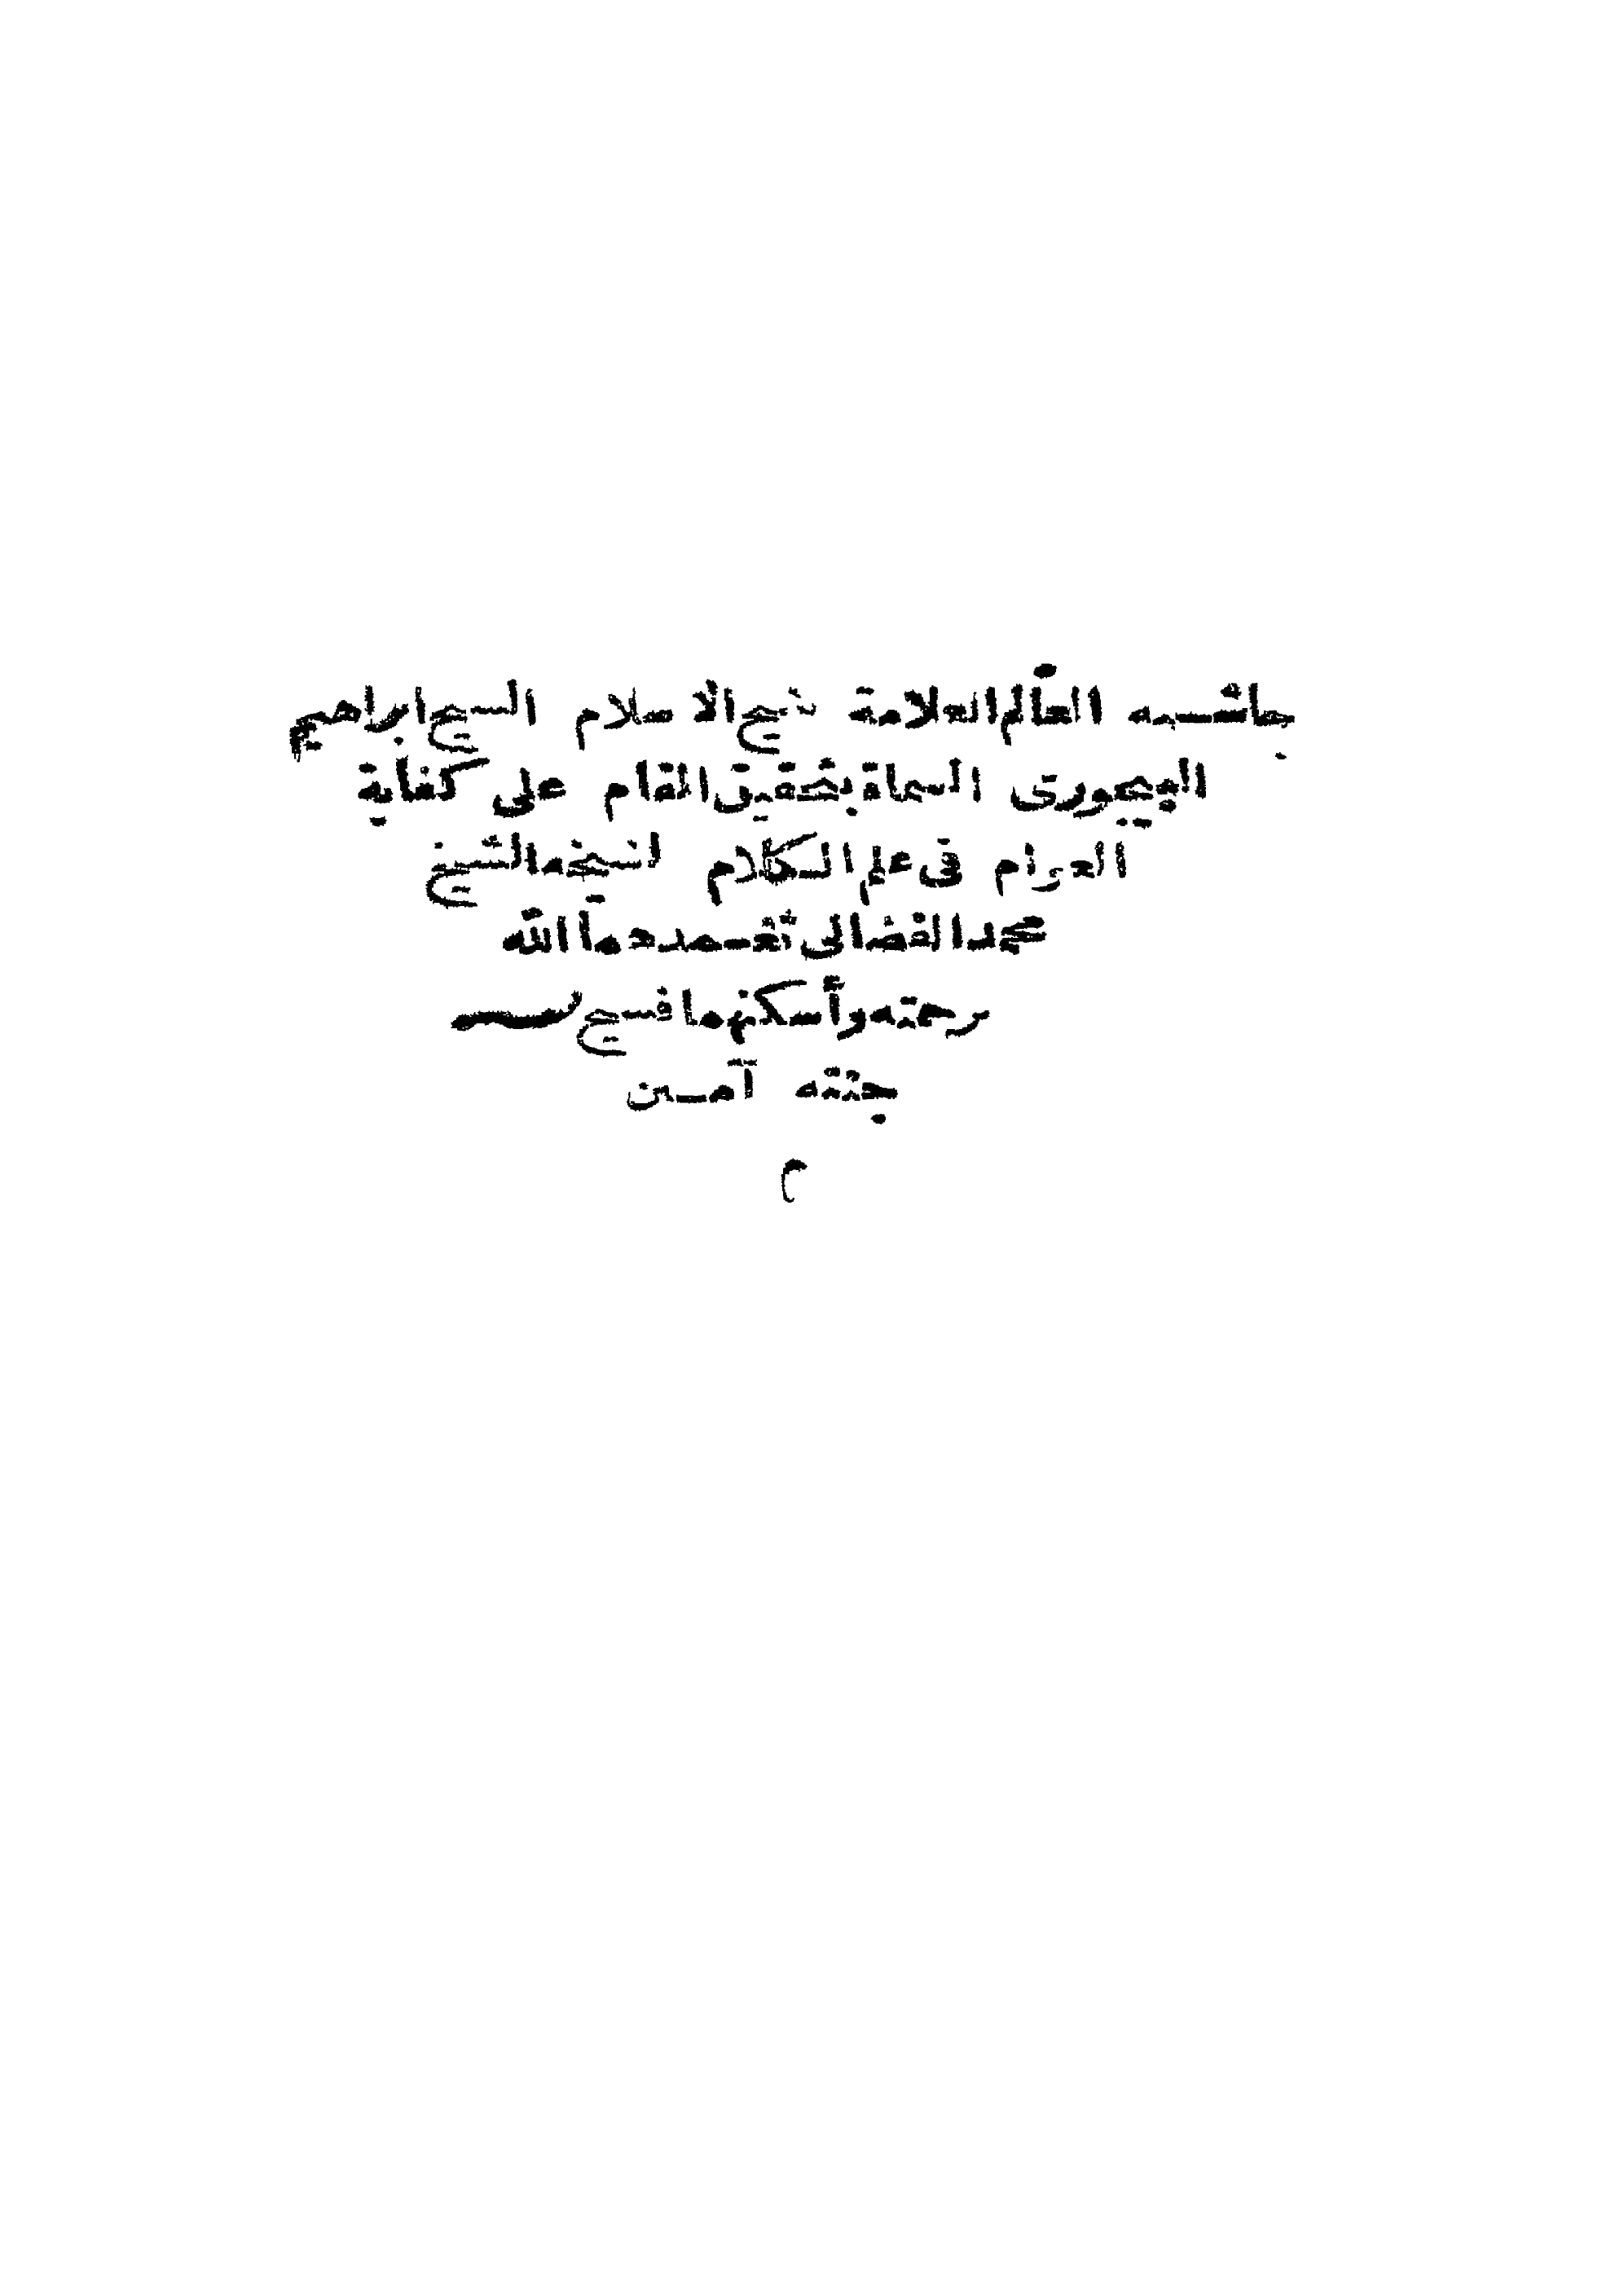 حاشية العالم العلامة شيخ الاسلام الشيخ ابراهيم
البيجورى المسماة بتحقيق المقام على كفاية
العوام فى علم الكلام لشيخه الشيخ
محمد الفضالى تغمدهما الله
برحمته وأسكنهما فسيح
جنته آمين
م